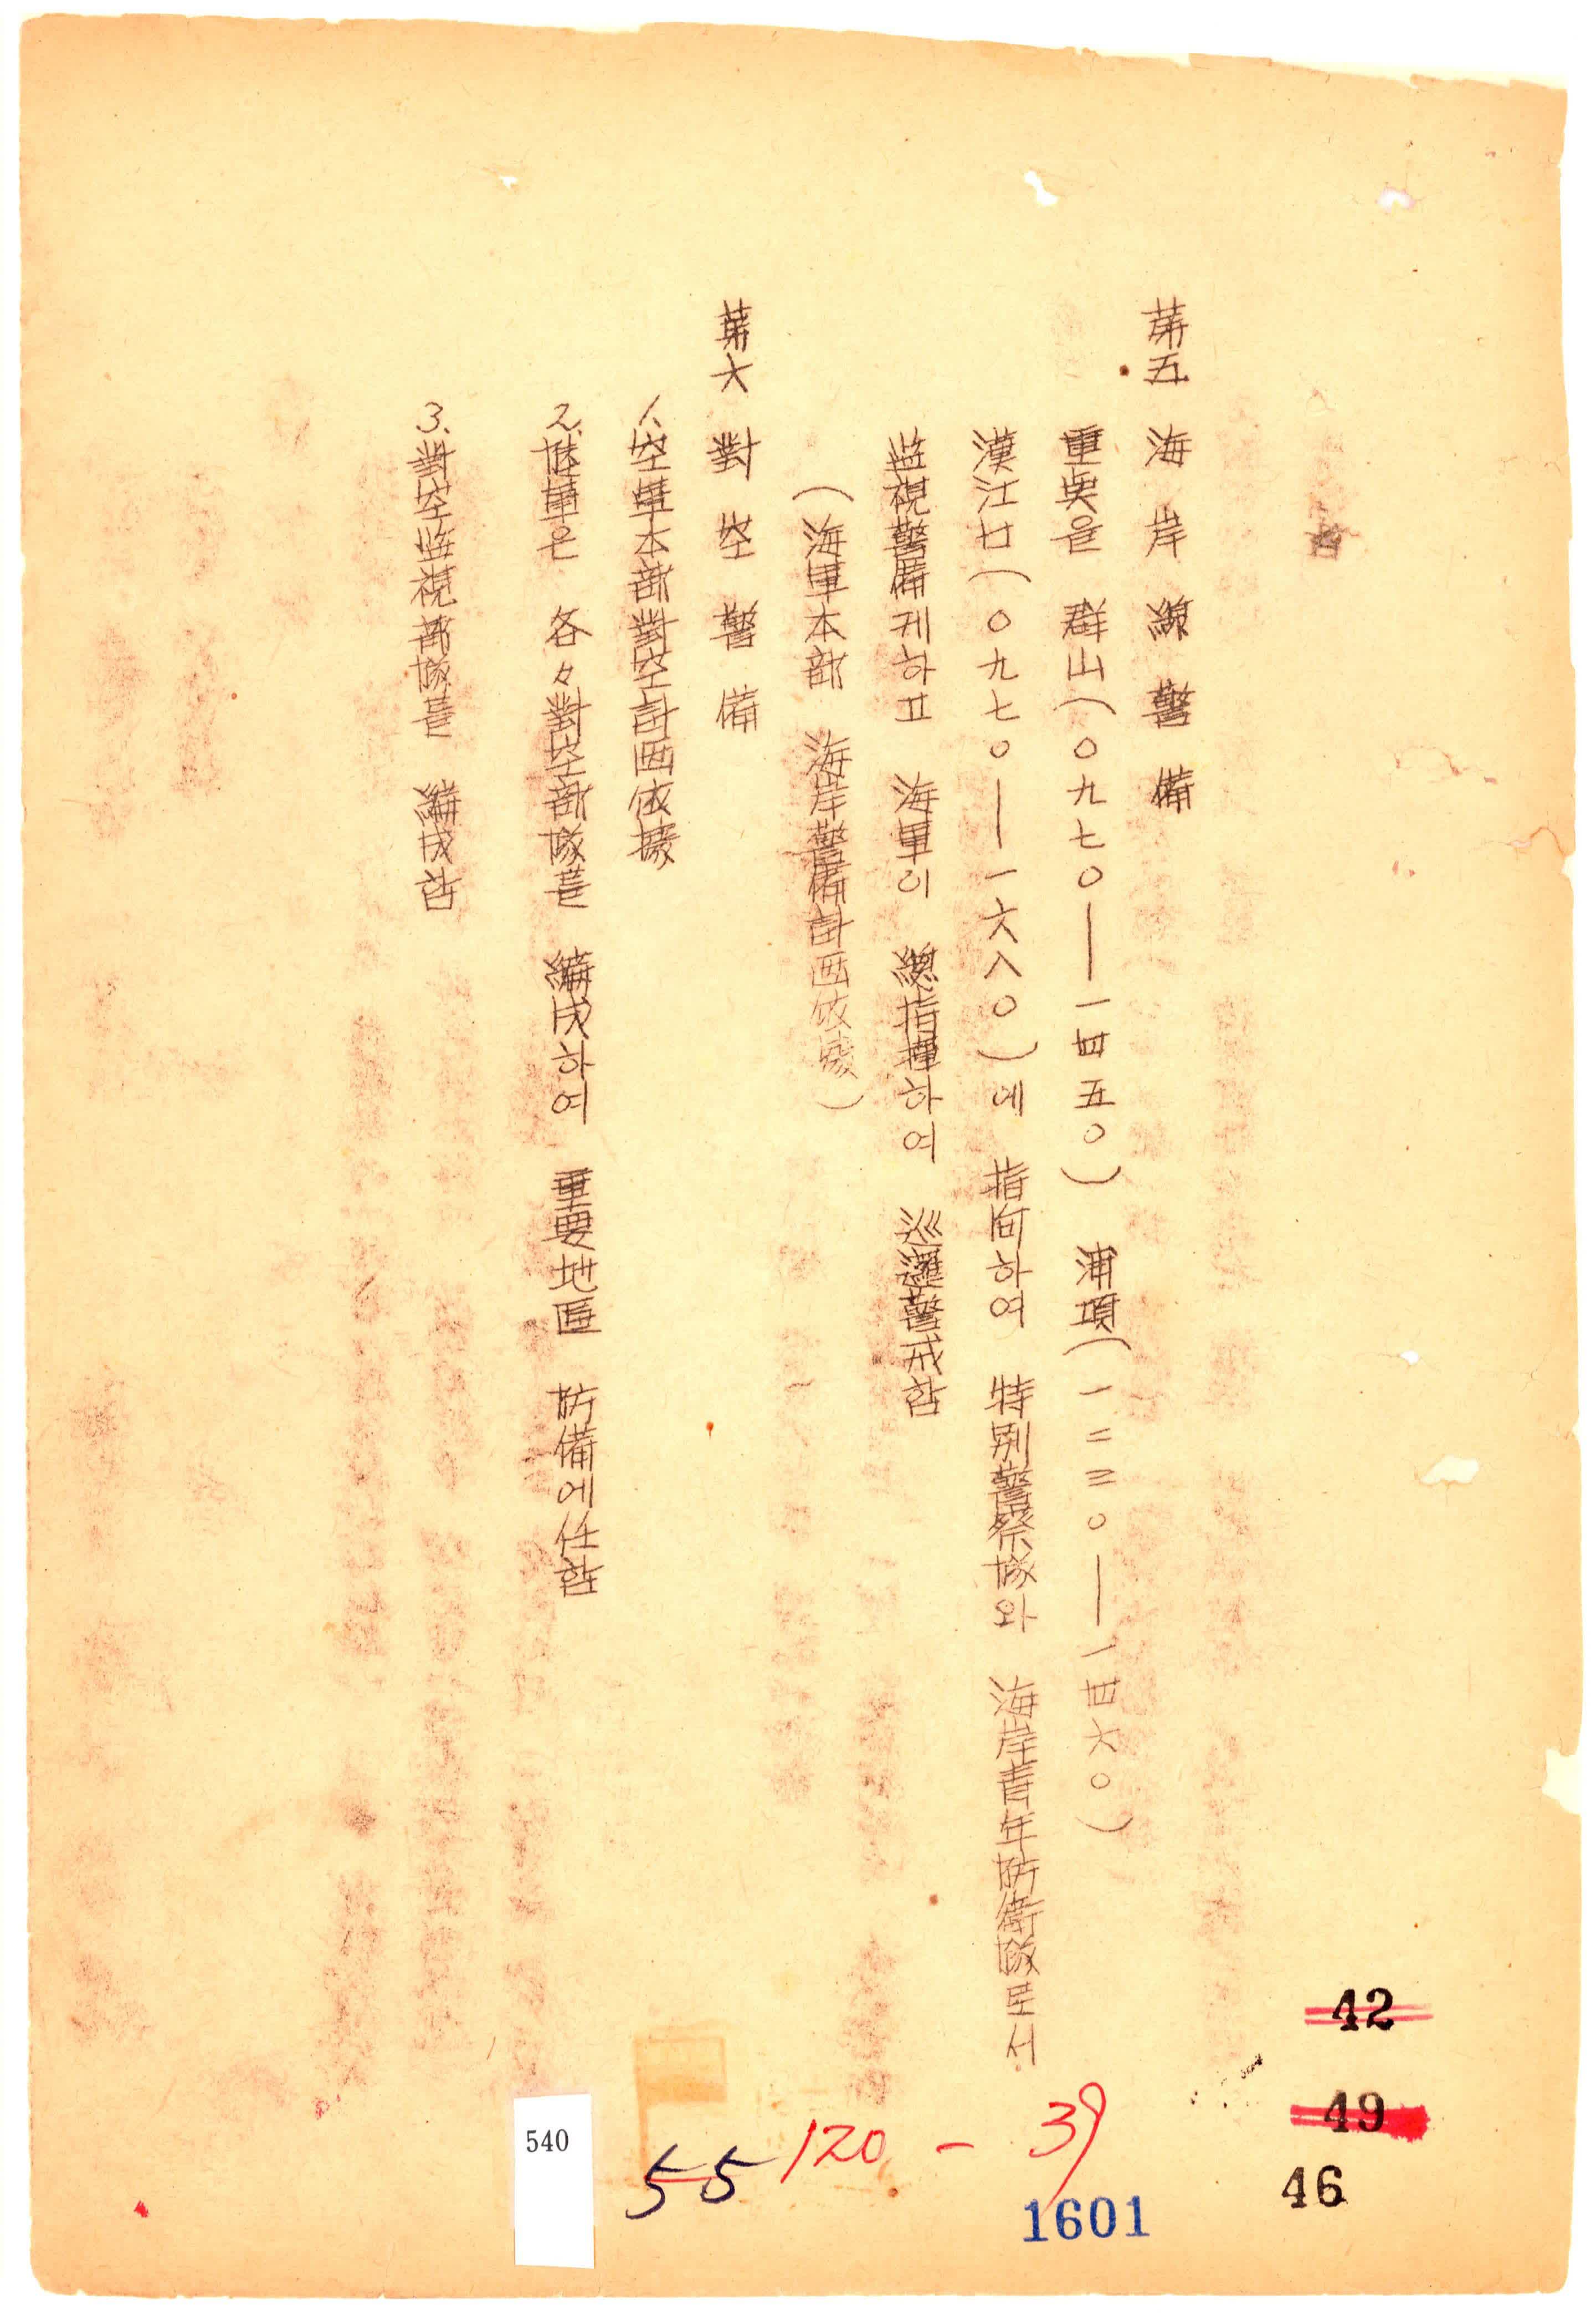 第五 海岸線警備
重点을 群山(○九七○—一四五○) 浦項(一二三○—一四六○)
漢江口(○九七○—一六八○)에 指向하여 特別警察隊와 海岸青年防衛隊로서
监視警備케하고 海軍이 總指揮하여 巡邏警戒함
(海軍本部 海岸警備計画依據)
第六 對空警備
1. 空軍本部對空計画依據
2. 陸軍은 各々對空部隊를 編成하여 重要地區 防備에任함
3. 對空监視部隊를 編成함
42
49
46
39
120 -
55
1601
540